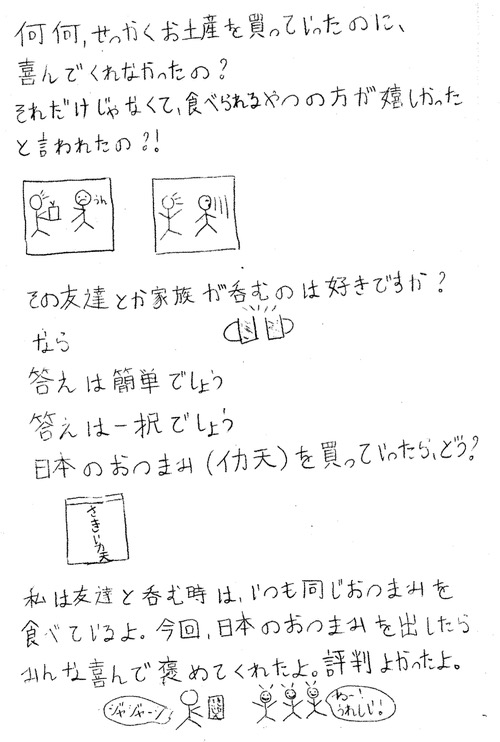 何何,せっかくお土産を買っていったのに、
喜んでくれなかったの?
それだけじゃなくて,食べられるやつの方が嬉しかった
と言われたの?!
うん
その友達とか家族が呑むのは好きですか?
なら
答えは簡単でしょう
答えは一択でしょう
日本のおつまみ(イカ天)を買っていったら,どう?
さきいか天
私は友達と呑む時は,いつも同じおつまみを
食べているよ。今回,日本のおつまみを出したら
みんな喜んで褒めてくれたよ。評判よかったよ。
ジャジャーン
わー!
うれしい!